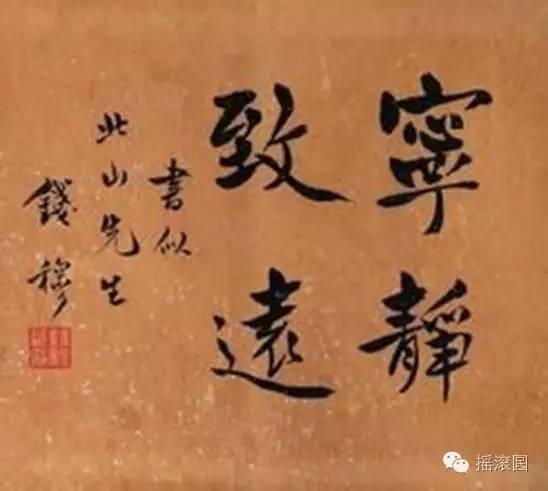 寧靜
致遠
書似
此山先生
錢穆
摇滚圆